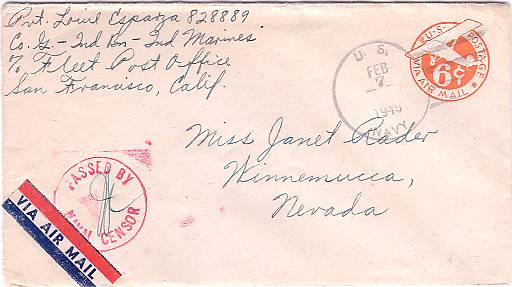 Pvt. Louie Esparza 828889
Co. G - 2nd Bn - 2nd Marines
% Fleet Post Office
San Francisco, Calif.
U. S.
FEB
7
1945
NAVY
U.S. POSTAGE
6¢
VIA AIR MAIL
Miss Janet Rader
Winnemucca,
Nevada
PASSED BY
NAVAL CENSOR
VIA AIR MAIL